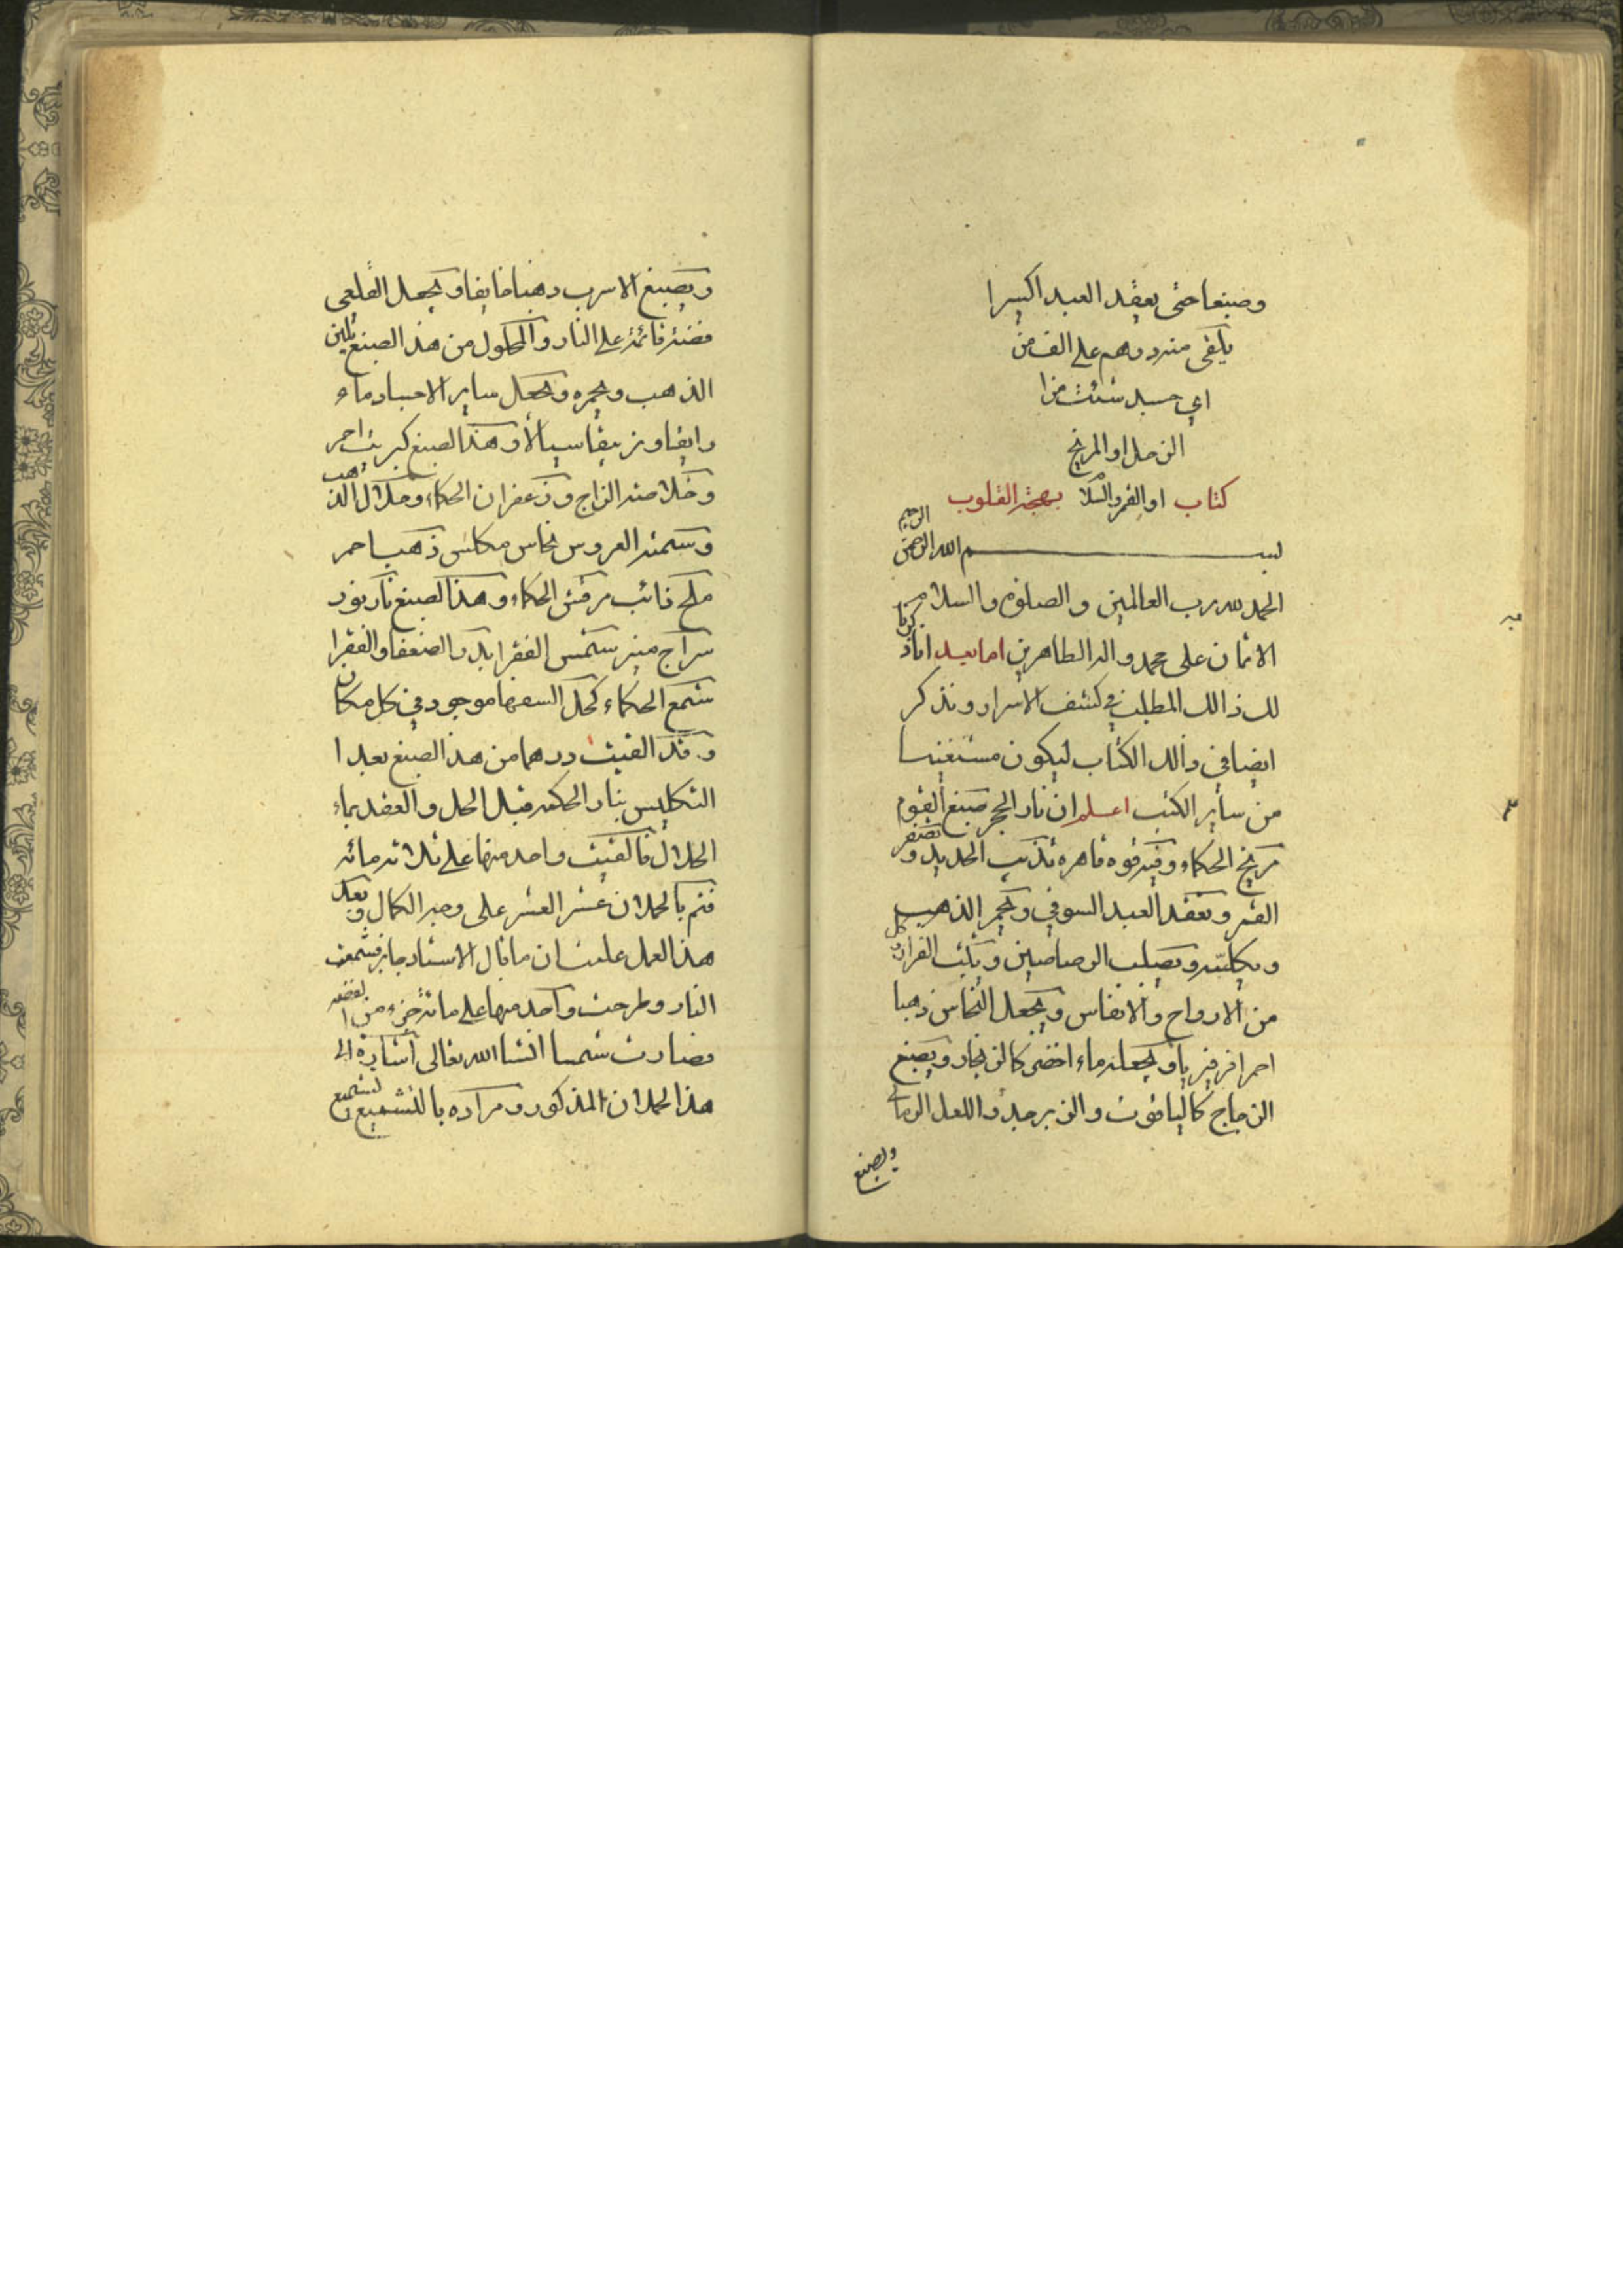 وصبغا حتى يعقد العبد اكسيرا
يلقى منه درهم على الف من
اي جسد شئت من
الزحل او المريخ
كتاب او القمر والسلا بهجة القلوب
بسم الله الرحمن الرحيم
الحمد لله رب العالمين والصلوة والسلام
الاتمان على محمد واله الطاهرين اما بعد اناذ
لك ذالك المطلب في كشف الاسرار ونذكر
ايضا في ذالك الكتاب ليكون مستغنيا
من ساير الكتب اعلم ان نار الحجر صبغ القوم
مريخ الحكماء وفيه قوة قاهرة تذيب الحديد و تصفر
القمر وتعقد العبد السوقي ويحمر الذهب
ويكلسه ويصلب الرصاصين ويثبت الفرار
من الارواح والانفاس ويجعل النحاس ذهبا
احمرا فرفيريا ويجعله ماء اخضر كالزنجار ويصبغ
الزجاج كالياقوت والزبرجد واللعل الرماني
ويصبغ
ويصبغ الاسرب ذهبا فايقا ويجعل القلعى
فضة قائمة على النار والمحلول من هذا الصبغ يلين
الذهب ويحمره ويجعل ساير الاجساد ماء
رايقا وزيبقا سيالا وهذا الصبغ كبريت احمر
وخلاصة الزاج وزعفران الحكماء وحلال الذهب
وسمته العروس نحاس مكلس ذهب احمر
ملح ذائب مرقش الحكماء وهذا الصبغ نار نور
سراج منير شمس الفقرا بدر الضعفا والفقرا
شمع الحكماء كحل السفها موجود في كل مكان
وقد القيت درهما من هذا الصبغ بعد ا
التكليس بنار الحكمة قبل الحل والعقد بماء
الحلال فالقيت واحد منها على ثلاثه مائه
فتم بالحملان عشر العشر على وجه الكمال وبعد
هذا العمل علمت ان ما قال الاستاد جابر فشمعت
النار وطرحت واحد منها على مائه جزء من الفضة
فصارت شمسا انشا الله تعالى اشارة الى
هذا الحملان المذكور ومراده بالتشميع